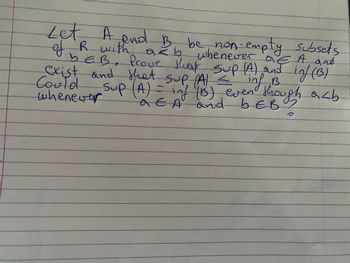 Let A and B be non-empty subsets
of R with a<b whenever a ∈ A and
b ∈ B. Prove that sup (A) and inf (B)
exist and that sup (A) ≤ inf B
Could sup (A) = inf (B) even though a<b
whenever a ∈ A and b ∈ B ?